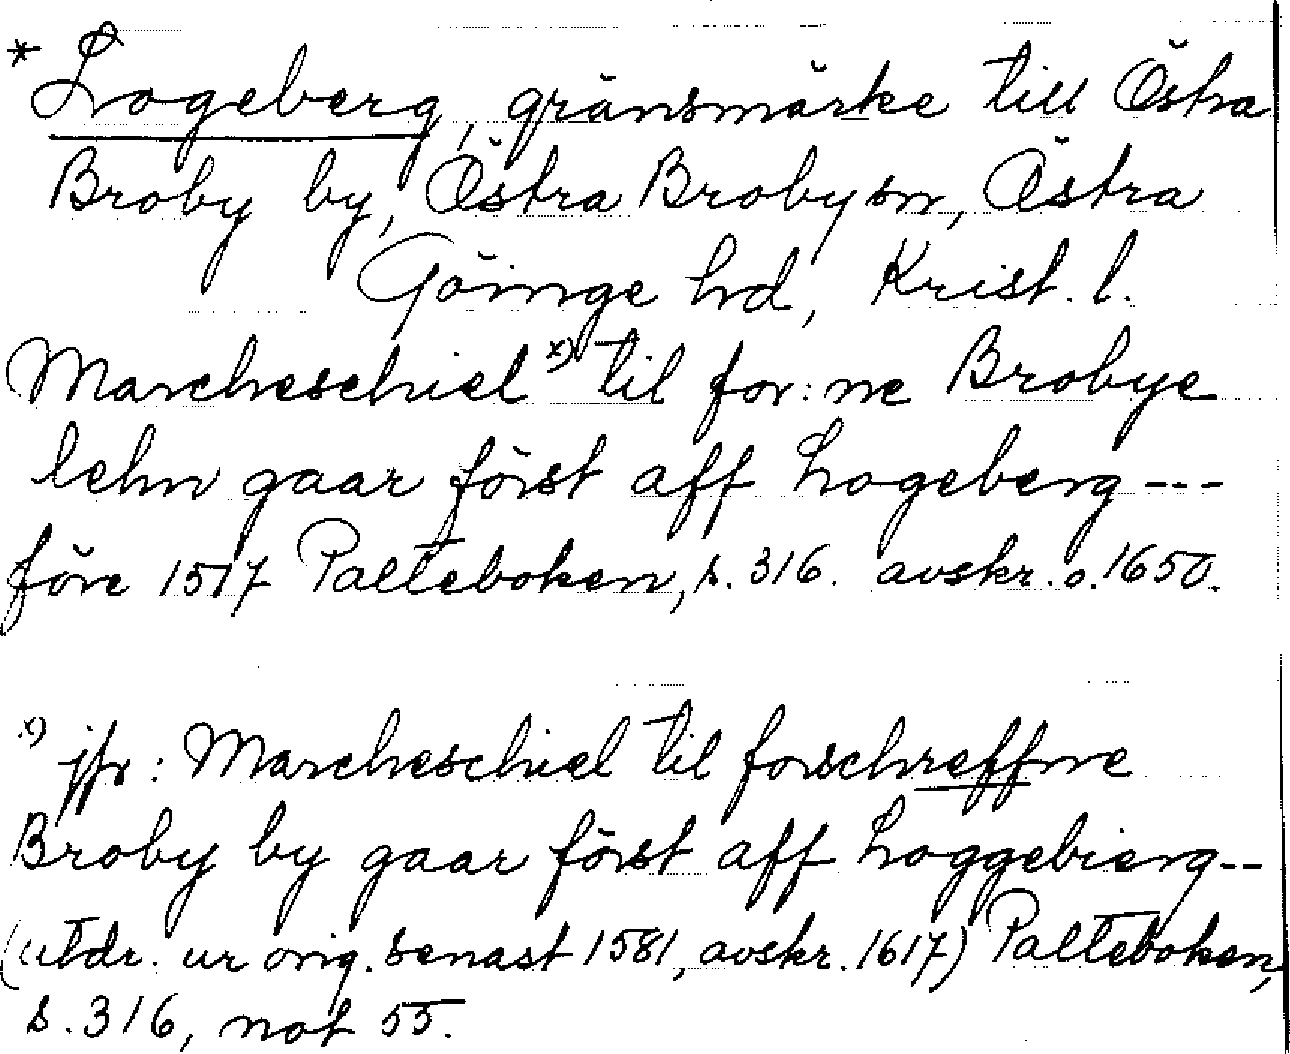 * Logeberg, gränsmärke till Östra
Broby by, Östra Broby sn, Östra
Göinge hd, Krist. l.
Marcheschiel x) til for:ne Brobye
lehn gaar först aff Logeberg ---
före 1517 Palteboken, s. 316. avskr. o. 1650.
x) jfr: Marcheschiel til forschreffne
Broby by gaar först aff Loggebierg --
(utdr. ur orig. senast 1581, avskr. 1617) Palteboken,
s. 316, not 55.